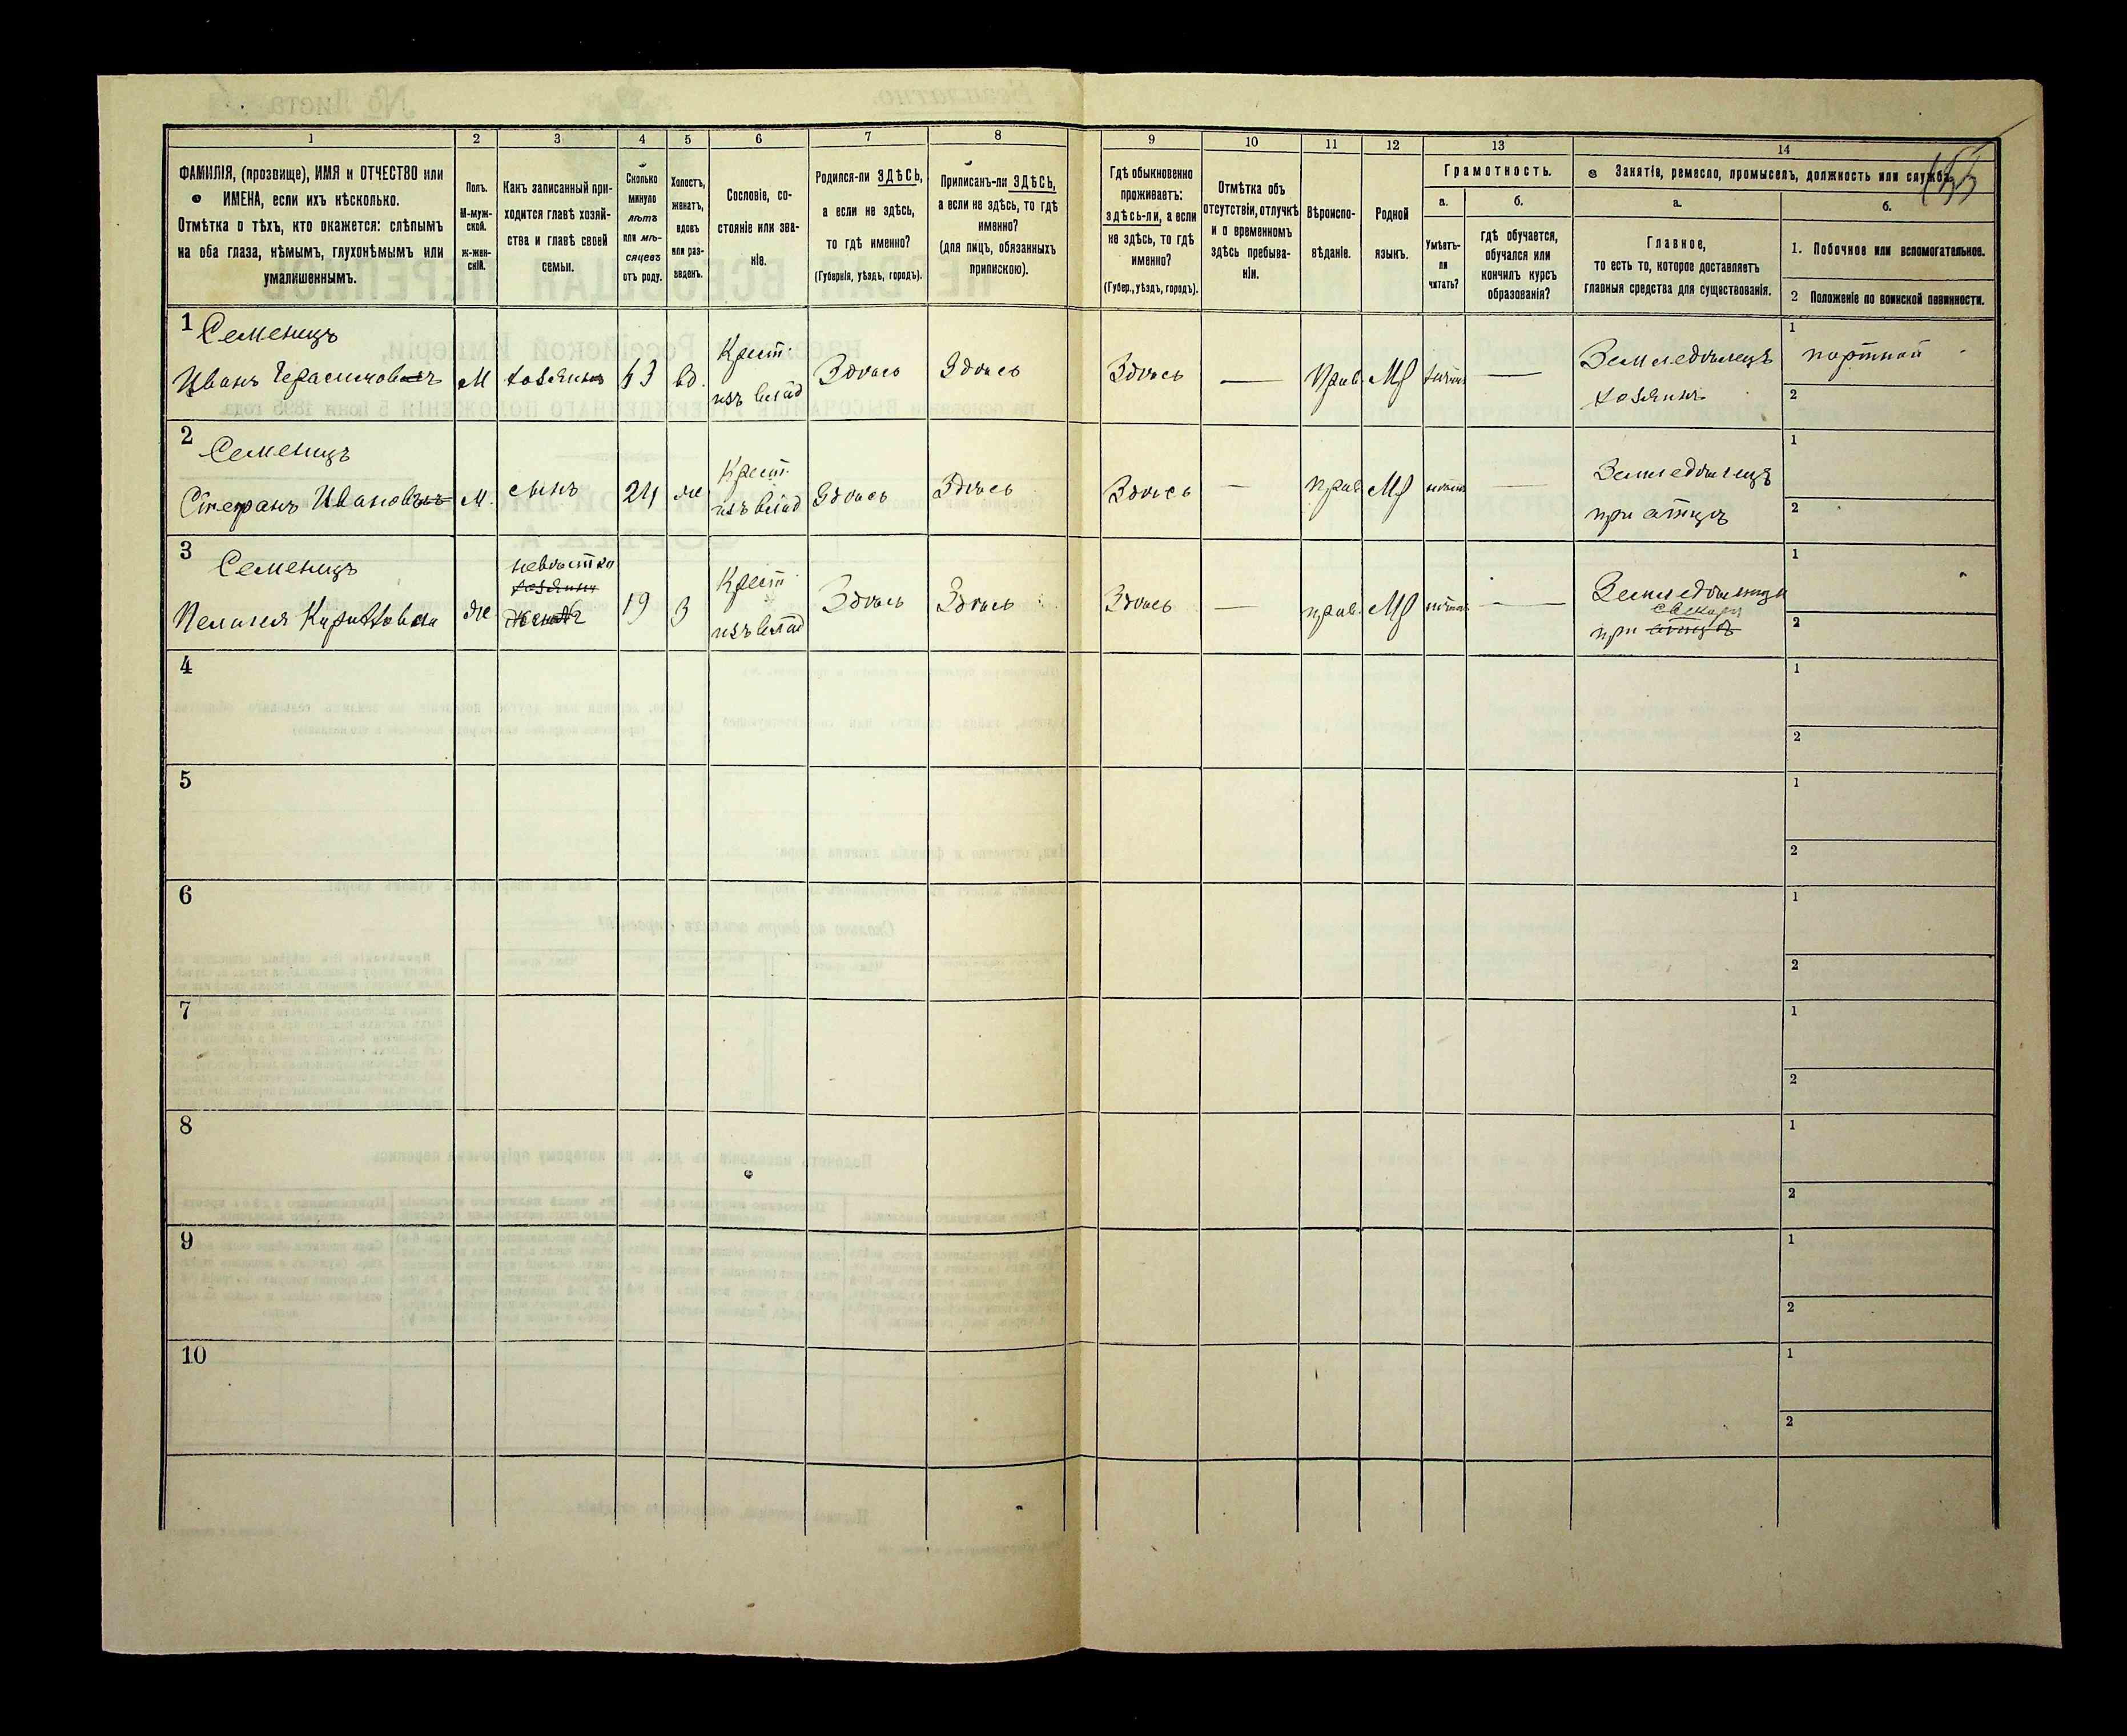 1 2 3 4 5 6 7 8 9 10 11 12 13 14
ФАМИЛІЯ, (прозвище), ИМЯ и ОТЧЕСТВО или
ИМЕНА, если ихъ нѣсколько.
Отмѣтка о тѣхъ, кто окажется: слѣпымъ
на оба глаза, нѣмымъ, глухонѣмымъ или
умалишеннымъ.
Полъ.
М-муж-
ской.
ж-жен-
скій.
Какъ записанный при-
ходится главѣ хозяй-
ства и главѣ своей
семьи.
Сколько
минуло
лѣтъ
или мѣ-
сяцевъ
отъ роду.
Холостъ,
женатъ,
вдовъ
или раз-
веденъ.
Сословіе, со-
стояніе или зва-
ніе.
Родился-ли ЗДѢСЬ,
а если не здѣсь,
то гдѣ именно?
(Губернія, уѣздъ, городъ).
Приписанъ-ли ЗДѢСЬ,
а если не здѣсь, то гдѣ
именно?
(для лицъ, обязанныхъ
припискою).
Гдѣ обыкновенно
проживаетъ:
здѣсь-ли, а если
не здѣсь, то гдѣ
именно?
(Губер., уѣздъ, городъ).
Отмѣтка объ
отсутствіи, отлучкѣ
и о временномъ
здѣсь пребыва-
ніи.
Вѣроиспо-
вѣданіе.
Родной
языкъ.
Грамотность.
а.
Умѣетъ-
ли
читать?
б.
гдѣ обучается,
обучался или
кончилъ курсъ
образованія?
Занятіе, ремесло, промыселъ, должность или служба.
а.
Главное,
то есть то, которое доставляетъ
главныя средства для существованія.
б.
1. Побочное или вспомогательное.
2 Положеніе по воинской повинности.
1 Семеницъ
Иванъ Герасимовъ М хозяинъ 63 вд. Крест. изъ влад Здѣсь Здѣсь Здѣсь — Прав. — Земледѣлецъ хозяинъ
1 портной
2
2 Семеницъ
Стефанъ Ивановъ М. сынъ 24 ж Крест. изъ влад Здѣсь Здѣсь Здѣсь — прав. — Земледѣлецъ при отцѣ
1
2
3 Семеницъ
невѣстка
хозяинъ
Пелагея Ж 19 З Крест изъ влад Здѣсь Здѣсь Здѣсь — прав. — Земледѣлица
свекорѣ
при отцѣ
1
2
4
1
2
5
1
2
6
1
2
7
1
2
8
1
2
9
1
2
10
1
2